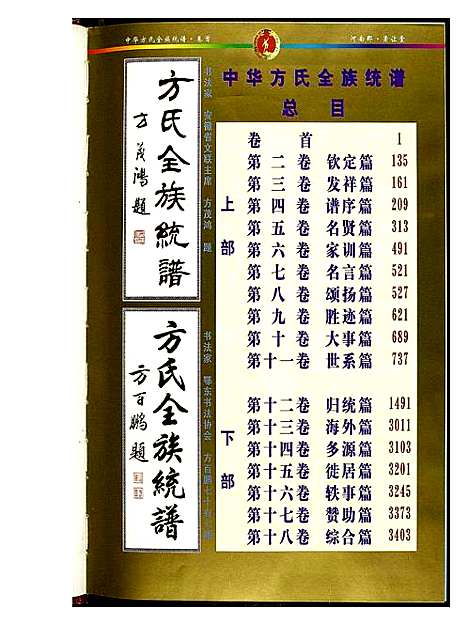 中华方氏全族统谱·卷首
方氏全族統譜
方茂鴻題
书法家 安徽省文联主席 方茂鸿 题
方氏全族統譜
方百鵬題
中华方氏全族统谱
总目
上部
卷首 1
第二卷 钦定篇 135
第三卷 发祥篇 161
第四卷 谱序篇 209
第五卷 名贤篇 313
第六卷 家训篇 491
第七卷 名言篇 521
第八卷 颂扬篇 527
第九卷 胜迹篇 621
第十卷 大事篇 689
第十一卷 世系篇 737
下部
第十二卷 归统篇 1491
第十三卷 海外篇 3011
第十四卷 多源篇 3103
第十五卷 徙居篇 3201
第十六卷 轶事篇 3245
第十七卷 赞助篇 3373
第十八卷 综合篇 3403